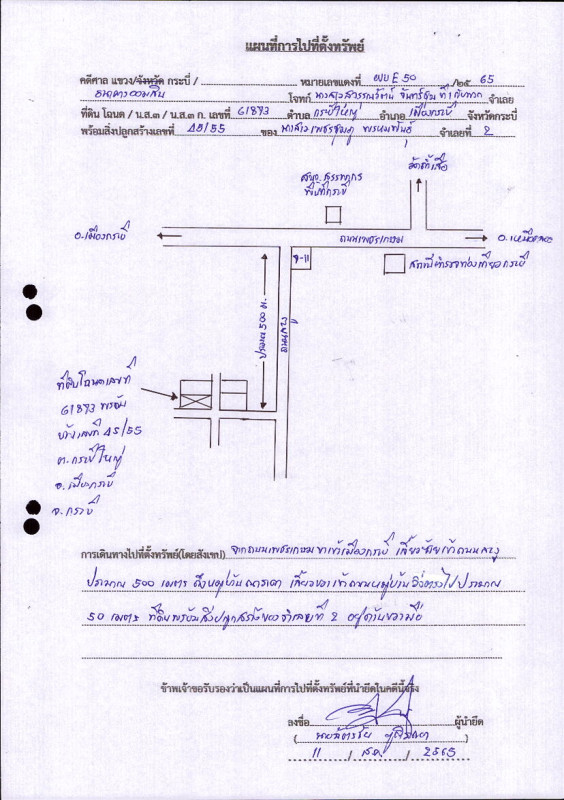 แผนที่การไปที่ตั้งทรัพย์
คดีศาล แขวง/จังหวัด กระบี่ / หมายเลขแดงที่ ผบE50 /๒๕ 65
ธนาคารออมสิน โจทก์ ที่ 1 กับพวก จำเลย
ที่ดิน โฉนด / น.ส.๓ / น.ส.๓ ก. เลขที่ 61893 ตำบล กระบี่ใหญ่ อำเภอ เมืองกระบี่ จังหวัดกระบี่
พร้อมสิ่งปลูกสร้างเลขที่ 45/55 ของ จำเลยที่ 2
วัดถ้ำเสือ
สนง. สรรพากร
พื้นที่กระบี่
อ.เมืองกระบี่
ถนนเพชรเกษม
อ.เหนือคลอง
7-11
สถานีตำรวจท่องเที่ยวกระบี่
ประมาณ 500 ม.
ที่ดินโฉนดเลขที่
61893 พร้อม
บ้านเลขที่ 45/55
ต.กระบี่ใหญ่
อ.เมืองกระบี่
จ.กระบี่
การเดินทางไปที่ตั้งทรัพย์(โดยสังเขป) จากถนนเพชรเกษม ขาเข้าเมืองกระบี่ เลี้ยวซ้ายเข้าถนน
ประมาณ 500 เมตร ถึงหมู่บ้าน เลี้ยวขวาเข้าถนนหมู่บ้าน วิ่งตรงไปประมาณ
50 เมตร ที่ดินพร้อมสิ่งปลูกสร้างของจำเลยที่ 2 อยู่ด้านขวามือ
ข้าพเจ้าขอรับรองว่าเป็นแผนที่การไปที่ตั้งทรัพย์ที่นำยึดในคดีนี้จริง
ลงชื่อ ผู้นำยึด
11 / ส.ค. / 2565